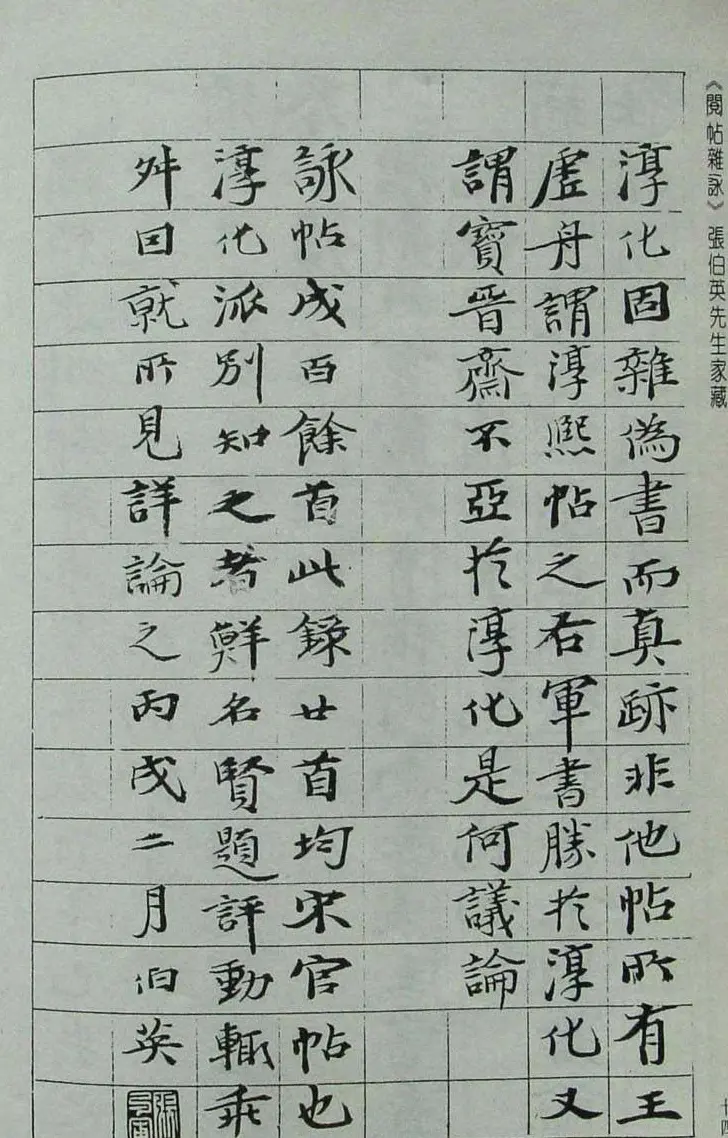 《閱帖雜詠》張伯英先生家藏
淳化固雜偽書而真跡非他帖所有王
虛舟謂淳熙帖之右軍書勝於淳化又
謂寶晉齋不亞於淳化是何議論
詠帖成百餘首此錄廿首均宋官帖也
淳化派別知之者鮮名賢題評動輒乖
舛因就所見詳論之丙戌二月伯英